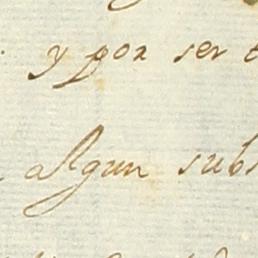 y por ser
Algun subs